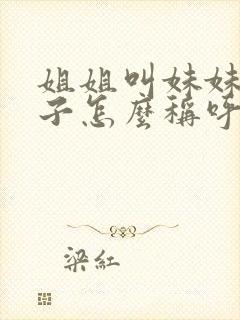 姐姐叫妹妹
子怎麼稱呼
梁紅